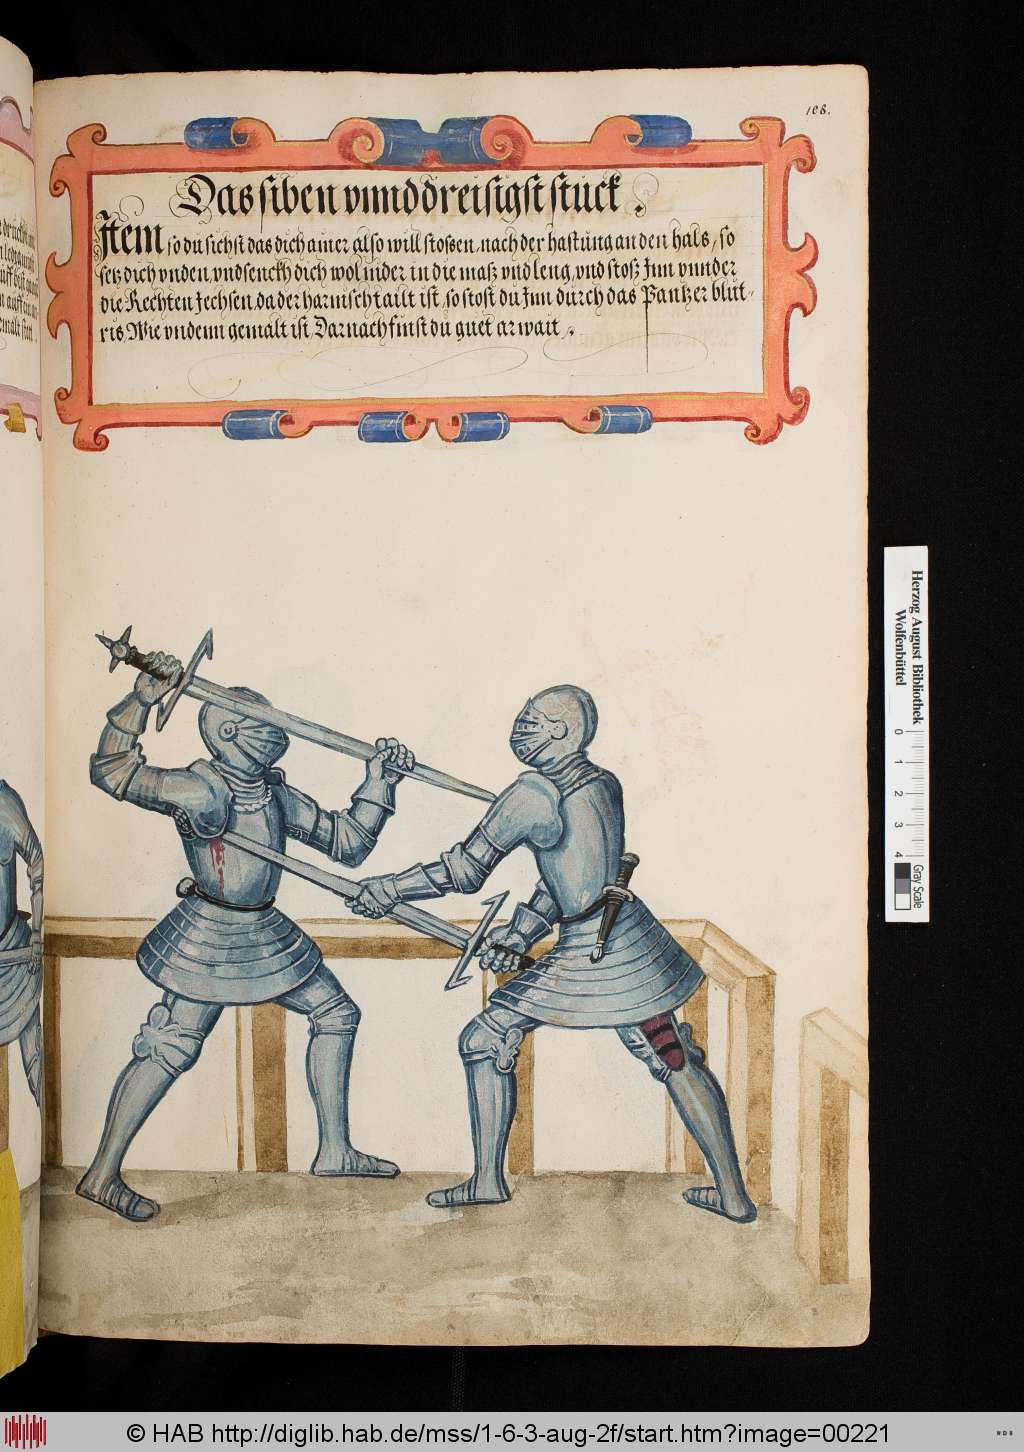 108.
Das siben vnnd dreisigst stuck
Item so du sichst das dich ainer also will stossen, nach der hastung an den hals, so
setz dich vnden vnd senckh dich wol nider in die masz vnd leng, vnd stosz Inn vnnder
die Rechten Jechsen, da der harnisch tailt ist, so stost du Inn durch das Pantzer blut-
ris, Wie vndenn gemalt ist, Darnach finst du guet arwait.
Herzog August Bibliothek
Wolfenbüttel
0 1 2 3 4
Gray Scale
© HAB http://diglib.hab.de/mss/1-6-3-aug-2f/start.htm?image=00221